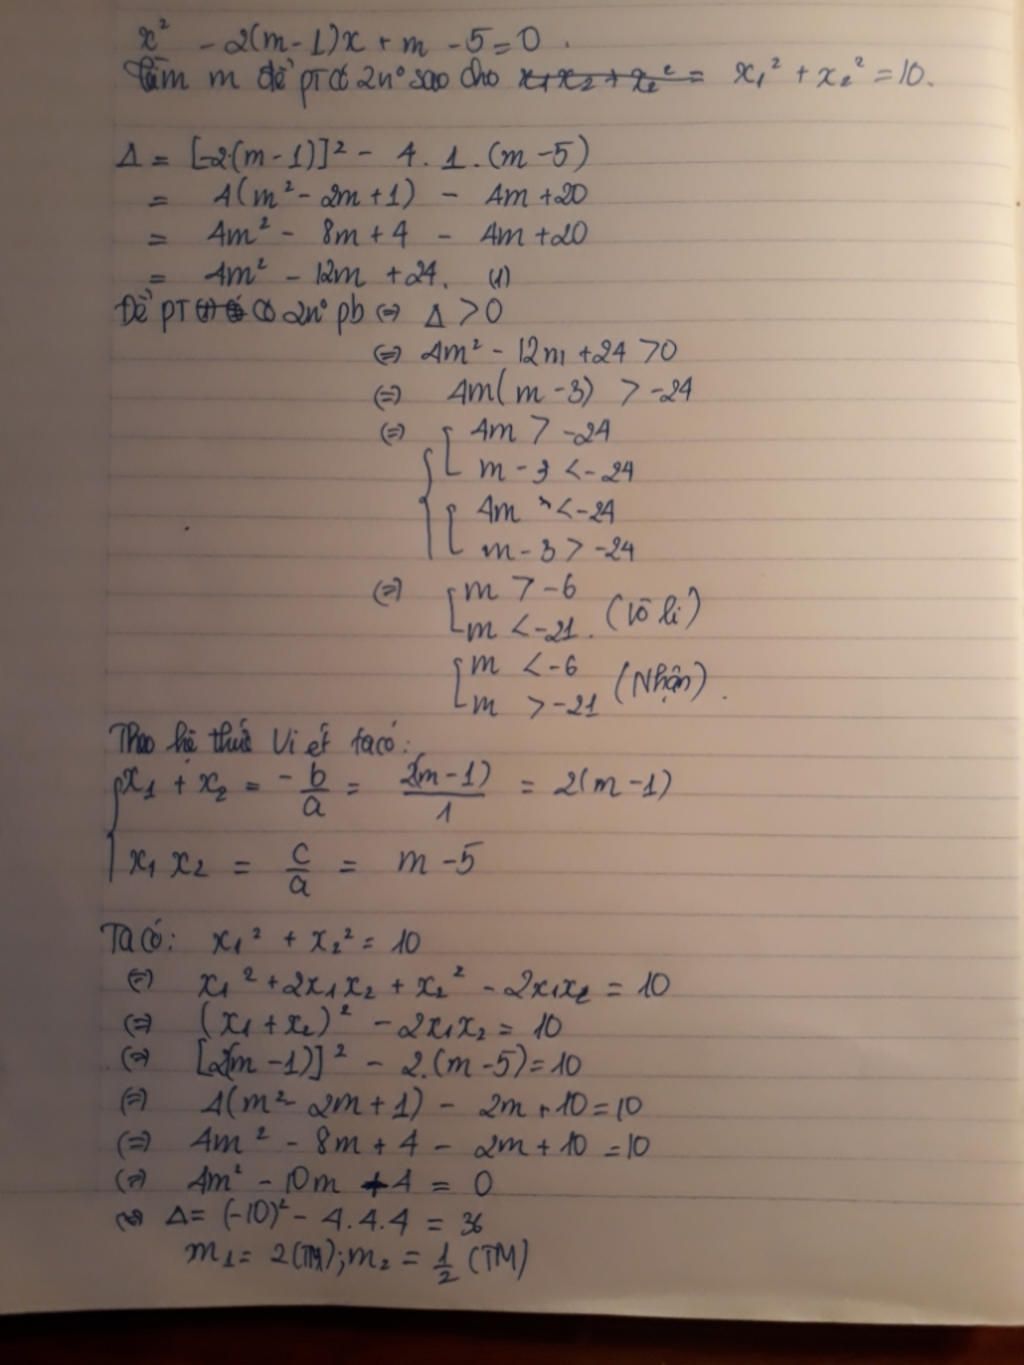 x² - 2(m-1)x + m - 5 = 0.
Tìm m để PT có 2n° sao cho x₁x₂ + x₂² = x₁² + x₂² = 10.
Δ = [-2(m-1)]² - 4.1.(m-5)
= 4(m² - 2m + 1) - 4m + 20
= 4m² - 8m + 4 - 4m + 20
= 4m² - 12m + 24. (1)
Để PT có 2n° pb ⇔ Δ > 0
⇔ 4m² - 12m + 24 > 0
⇔ 4m(m-3) > -24
⇔ 4m > -24
m - 3 < -24
4m < -24
m - 3 > -24
⇔ m > -6
m < -21. (Vô lí)
m < -6
m > -21 (Nhận).
Theo hệ thức Vi ét ta có:
x₁ + x₂ = -b/a = 2(m-1)/1 = 2(m-1)
x₁ x₂ = c/a = m - 5
Ta có: x₁² + x₂² = 10
⇔ x₁² + 2x₁x₂ + x₂² - 2x₁x₂ = 10
⇔ (x₁ + x₂)² - 2x₁x₂ = 10
⇔ [2(m-1)]² - 2.(m-5) = 10
⇔ 4(m² - 2m + 1) - 2m + 10 = 10
⇔ 4m² - 8m + 4 - 2m + 10 = 10
⇔ 4m² - 10m + 4 = 0
⇔ Δ = (-10)² - 4.4.4 = 36
m₁ = 2 (TM); m₂ = 1/2 (TM)